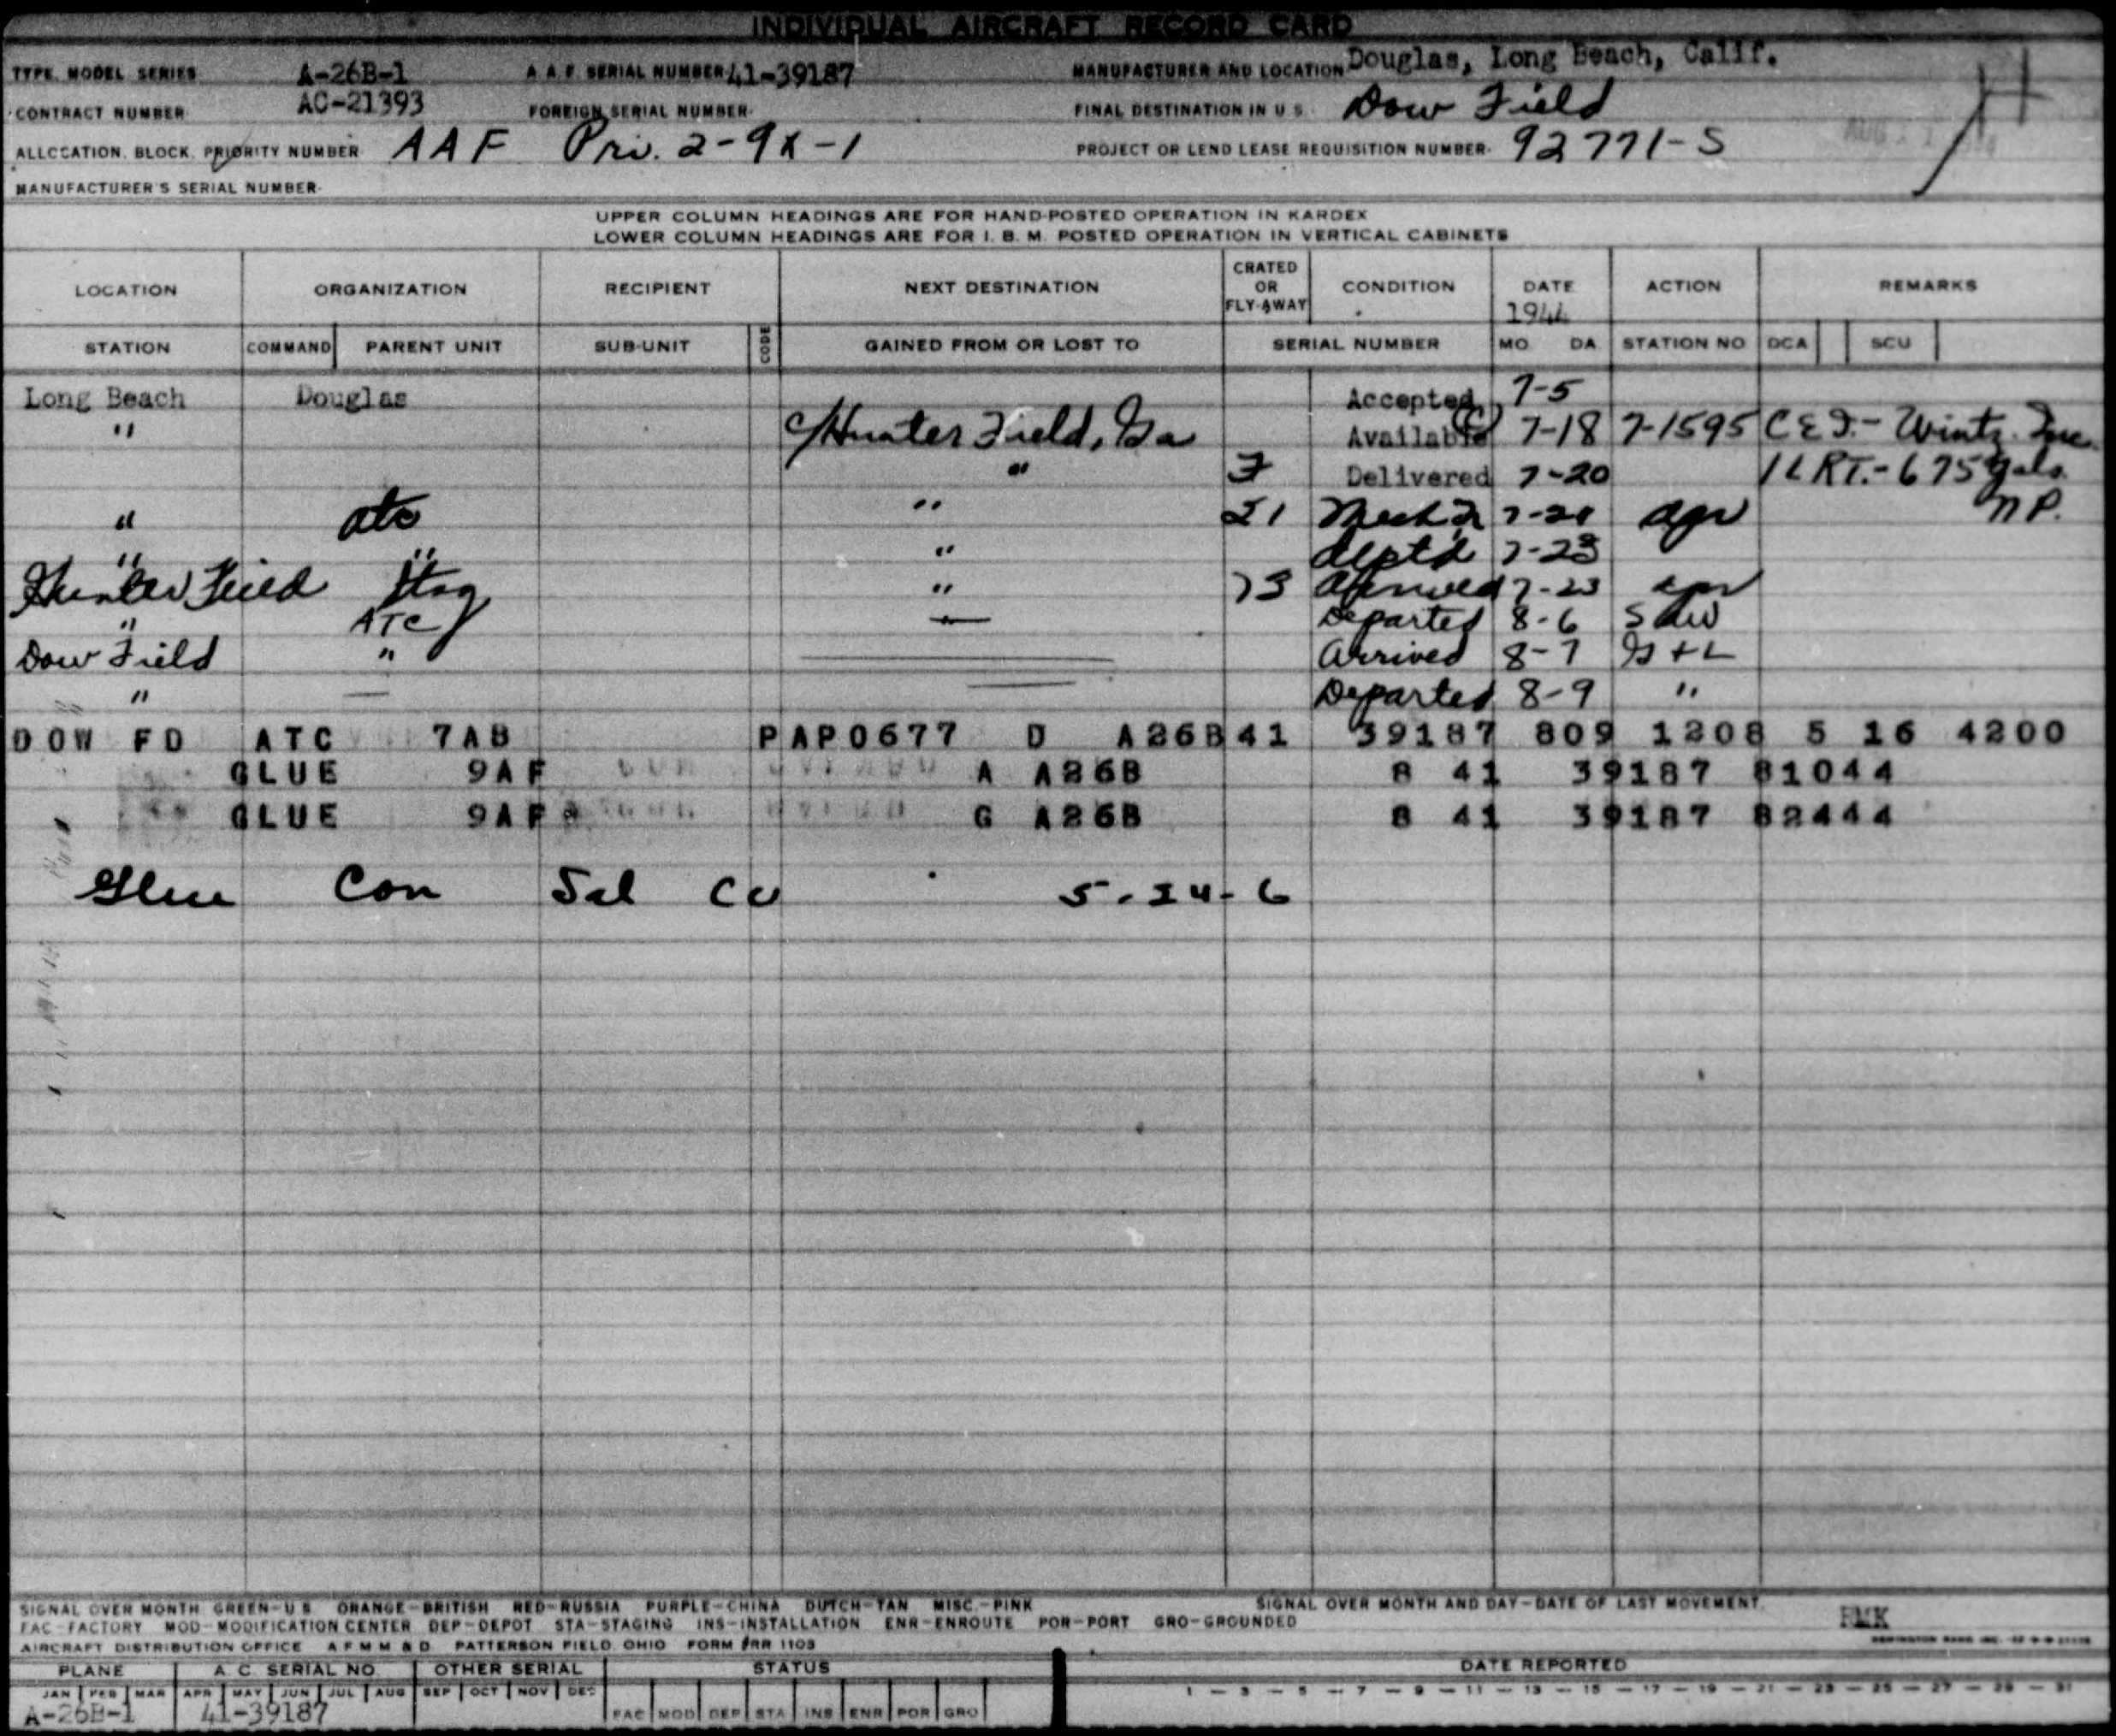 INDIVIDUAL AIRCRAFT RECORD CARD
TYPE MODEL SERIES A-26B-1 A.A.F. SERIAL NUMBER 41-39187 MANUFACTURER AND LOCATION Douglas, Long Beach, Calif.
CONTRACT NUMBER AC-21393 FOREIGN SERIAL NUMBER FINAL DESTINATION IN U S Dow Field
ALLOCATION, BLOCK, PRIORITY NUMBER AAF Pri. 2-9X-1 PROJECT OR LEND LEASE REQUISITION NUMBER 92771-S
MANUFACTURER'S SERIAL NUMBER
UPPER COLUMN HEADINGS ARE FOR HAND-POSTED OPERATION IN KARDEX
LOWER COLUMN HEADINGS ARE FOR I. B. M. POSTED OPERATION IN VERTICAL CABINETS
LOCATION ORGANIZATION RECIPIENT NEXT DESTINATION CRATED OR FLY-AWAY CONDITION DATE 1944 ACTION REMARKS
STATION COMMAND PARENT UNIT SUB-UNIT CODE GAINED FROM OR LOST TO SERIAL NUMBER MO DA STATION NO DCA SCU
Long Beach Douglas Accepted 7-5
" Hunter Field, Ga Available 7-18 7-1595 C&I.-
" F Delivered 7-20 675 gals.
" atc " 21 7-21 N.P.
" " " deptd 7-23
Hunter Field " 23 Arrived 7-23
" ATC — Departed 8-6
Dow Field " Arrived 8-7 G+L
" — Departed 8-9 "
DOW FD ATC 7AB PAP0677 D A26B41 39187 809 1208 5 16 4200
GLUE 9AF A A26B 8 41 39187 81044
GLUE 9AF G A26B 8 41 39187 82444
Glue Con Sal CU 5-24-6
SIGNAL OVER MONTH GREEN-U S ORANGE-BRITISH RED-RUSSIA PURPLE-CHINA DUTCH-TAN MISC.-PINK SIGNAL OVER MONTH AND DAY-DATE OF LAST MOVEMENT
FAC-FACTORY MOD-MODIFICATION CENTER DEP-DEPOT STA-STAGING INS-INSTALLATION ENR-ENROUTE POR-PORT GRO-GROUNDED
AIRCRAFT DISTRIBUTION OFFICE A F M M & D PATTERSON FIELD OHIO FORM #RR 1103
PLANE A. C. SERIAL NO. OTHER SERIAL STATUS DATE REPORTED
JAN FEB MAR APR MAY JUN JUL AUG SEP OCT NOV DEC 1 - 3 - 5 - 7 - 9 - 11 - 13 - 15 - 17 - 19 - 21 - 23 - 25 - 27 - 29 - 31
A-26B-1 41-39187 FAC MOD DEP STA INS ENR POR GRO